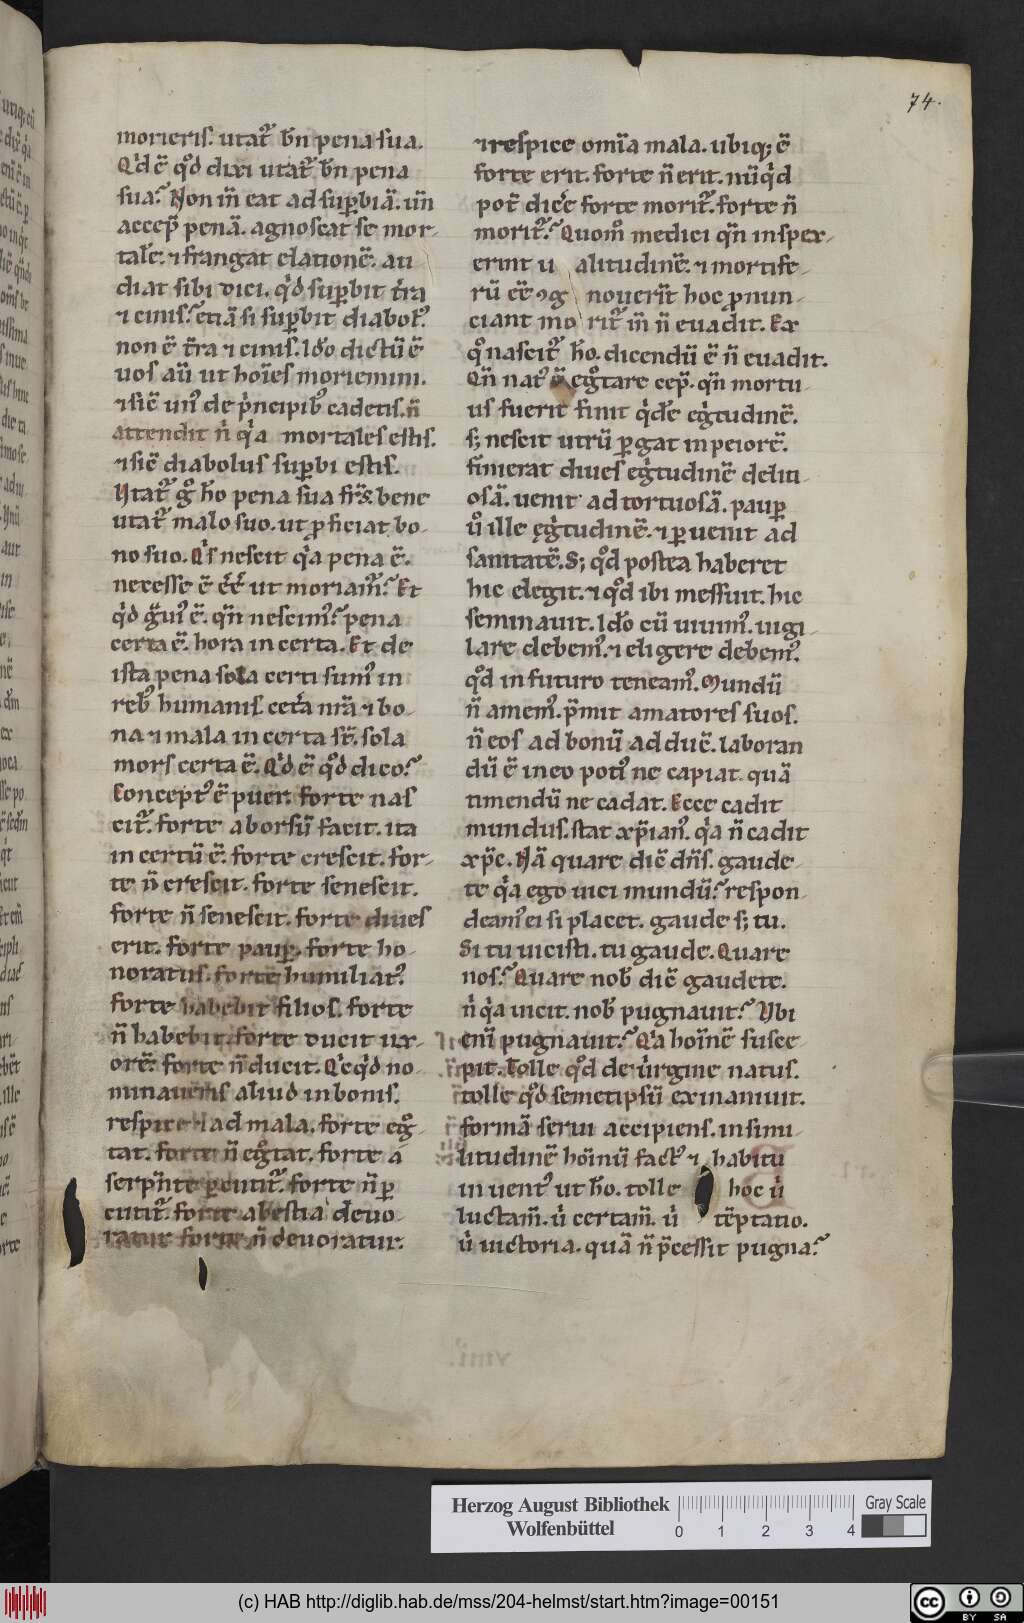 74.
morieris. utat᷑ bn̄ pena sua.
Qͥd ē qͦd dixi utat᷑ bn̄ pena
sua? Non in̄ eat ad sup̱biā. un̄
accep̄ penā. agnoscat se mor-
talē. ⁊ frangat elationē. au
diat sibi dici. qͥd sup̱bit t̄ra
⁊ cinis? etiā si sup̱bit diabolꝰ.
non ē t̄ra ⁊ cinis. Id̄o dictū ē
uos aū ut hoīes moriemini.
⁊ sic̄ unꝰ de pͥncipibꝰ cadetis. n̄
attendit n̄ qͥa mortales estis.
⁊ sic̄ diabolus sup̱bi estis.
Vtat᷑ gͦ h̄o pena sua fr̄s. bene
utat᷑ malo suo. ut ꝓficiat bo-
no suo. Qͥs nescit qͥa pena ē.
necesse ē ēē ut moriam᷑? Et
qͥd gͣuiꝰ ē. qn̄ nescimꝰ? pena
certa ē. hora incerta. Et de
ista pena sola certi sumꝰ in
rebꝰ humanis cet̄a nr̄a ⁊ bo-
na ⁊ mala incerta st̄. sola
mors certa ē. Qͥd ē qͦd dico?
Conceptꝰ ē puer. forte nas
cit᷑. forte aborsū facit. ita
incertū ē. forte crescit. for-
te n̄ crescit. forte senescit.
forte n̄ senescit. forte diues
erit. forte paup̱. forte ho-
noratus. forte humiliatꝰ.
forte habebit filios. forte
n̄ habebit. forte ducit ux-
orē. forte n̄ ducit. Qͥcqͥd no-
minaueris aliud in bonis.
respice ⁊ ad mala. forte egͦ-
tat. forte n̄ egͦtat. forte a
serpn̄te p̱cutit᷑. forte n̄ p̱
cutit᷑. forte a bestia deuo-
ratur forte n̄ deuoratur.
⁊ respice om̄ia mala. ubiqꝫ ē
forte erit. forte n̄ erit. nūqͥd
pot̄ dic̄e forte morit᷑. forte n̄
morit᷑? Quom̊ medici qn̄ inspex-
erint ualitudinē. ⁊ mortife-
rū ēē ꝯg nouerīt hoc ꝓnun-
ciant morit᷑ in̄ n̄ euadit. Ex
qͦ nascit᷑ h̄o. dicendū ē n̄ euadit.
Qn̄ natꝰ ē egͦtare cep̄. qn̄ mortu-
us fuerit finit qͥdē egͥtudinē.
sꝫ nescit utrū p̱gat in peiorē.
finierat diues egͥtudinē deliti-
osā. uenit ad tortuosā. paup̱
ů ille ęgͥtudinē. ⁊ p̱uenit ad
sanitatē. Sꝫ qͦd postea haberet
hic elegit. ⁊ qͦd ibi messuit. hic
seminauit. Id̄o cū uiuimꝰ. uigi-
lare debemꝰ. ⁊ eligere debemꝰ.
qͦd in futuro teneamꝰ. Mundū
n̄ amemꝰ. p̄mit amatores suos.
n̄ eos ad bonū adduc̄. laboran
dū ē in eo potiꝰ ne capiat. quā
timendū ne cadat. Ecce cadit
mundus. stat xp̄ianꝰ. qͥa n̄ cadit
xp̄c. Nā quare dic̄ dn̄s. gaude-
te qͥa ego uici mundū? respon-
deamꝰ ei si placet. gaude sꝫ tu.
Si tu uicisti. tu gaude. Quare
nos? Quare nob̄ dic̄ gaudete.
n̄ qͥa uicit. nob̄ pugnauit? Vbi
eni pugnauit? Qͥa hoīnē susce-
pit. Tolle qͦd de uͥrgine natus.
tolle qͦd semetipsū exinaniuit.
formā serui accipiens. in simi-
litudinē hoīnū factꝰ ⁊ habitu
inuentꝰ ut h̄o. tolle hoc uͥ
luctam̄. uͥ certam̄. uͥ tēptatio.
uͥ uictoria. quā n̄ p̄cessit pugna?
Herzog August Bibliothek
Wolfenbüttel
0 1 2 3 4
Gray Scale
(c) HAB http://diglib.hab.de/mss/204-helmst/start.htm?image=00151
cc BY SA